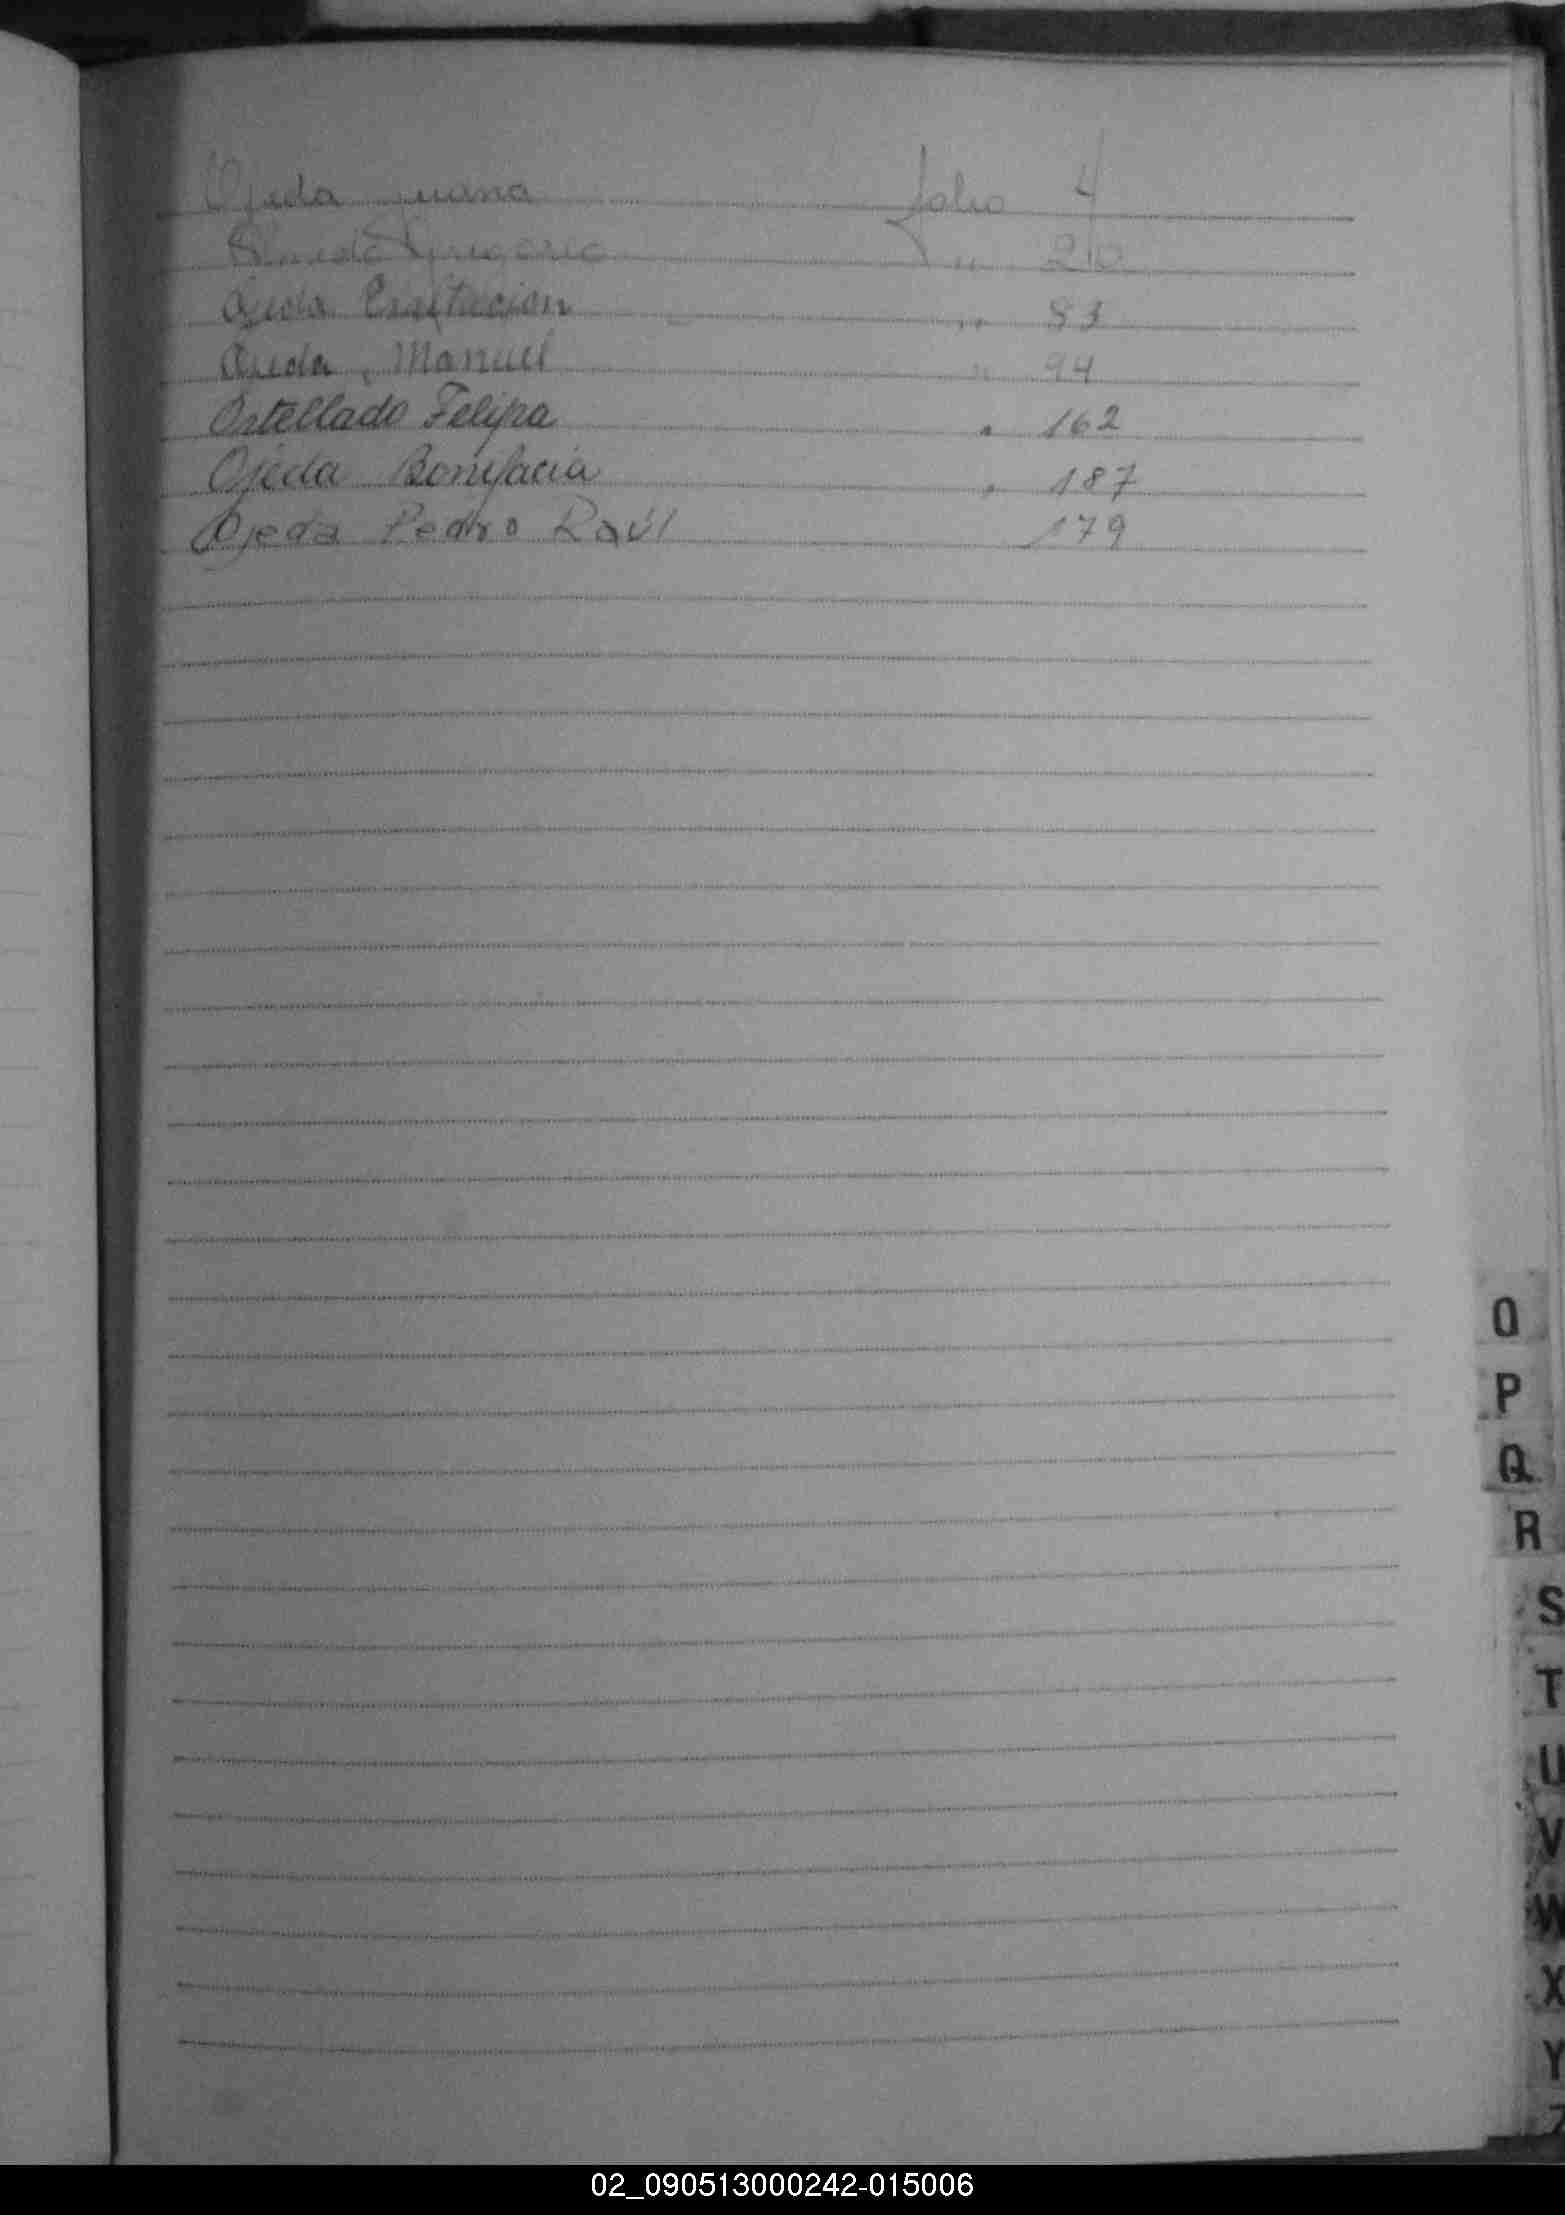 Ojeda Juana folio 4
Olmedo Gregorio " 210
Ojeda " 83
Ojeda, Manuel " 94
Ortellado Felipa " 162
Ojeda Bonifacia " 187
Ojeda Pedro Raúl 179
O
P
Q
R
S
T
U
V
W
X
Y
Z
02_090513000242-015006